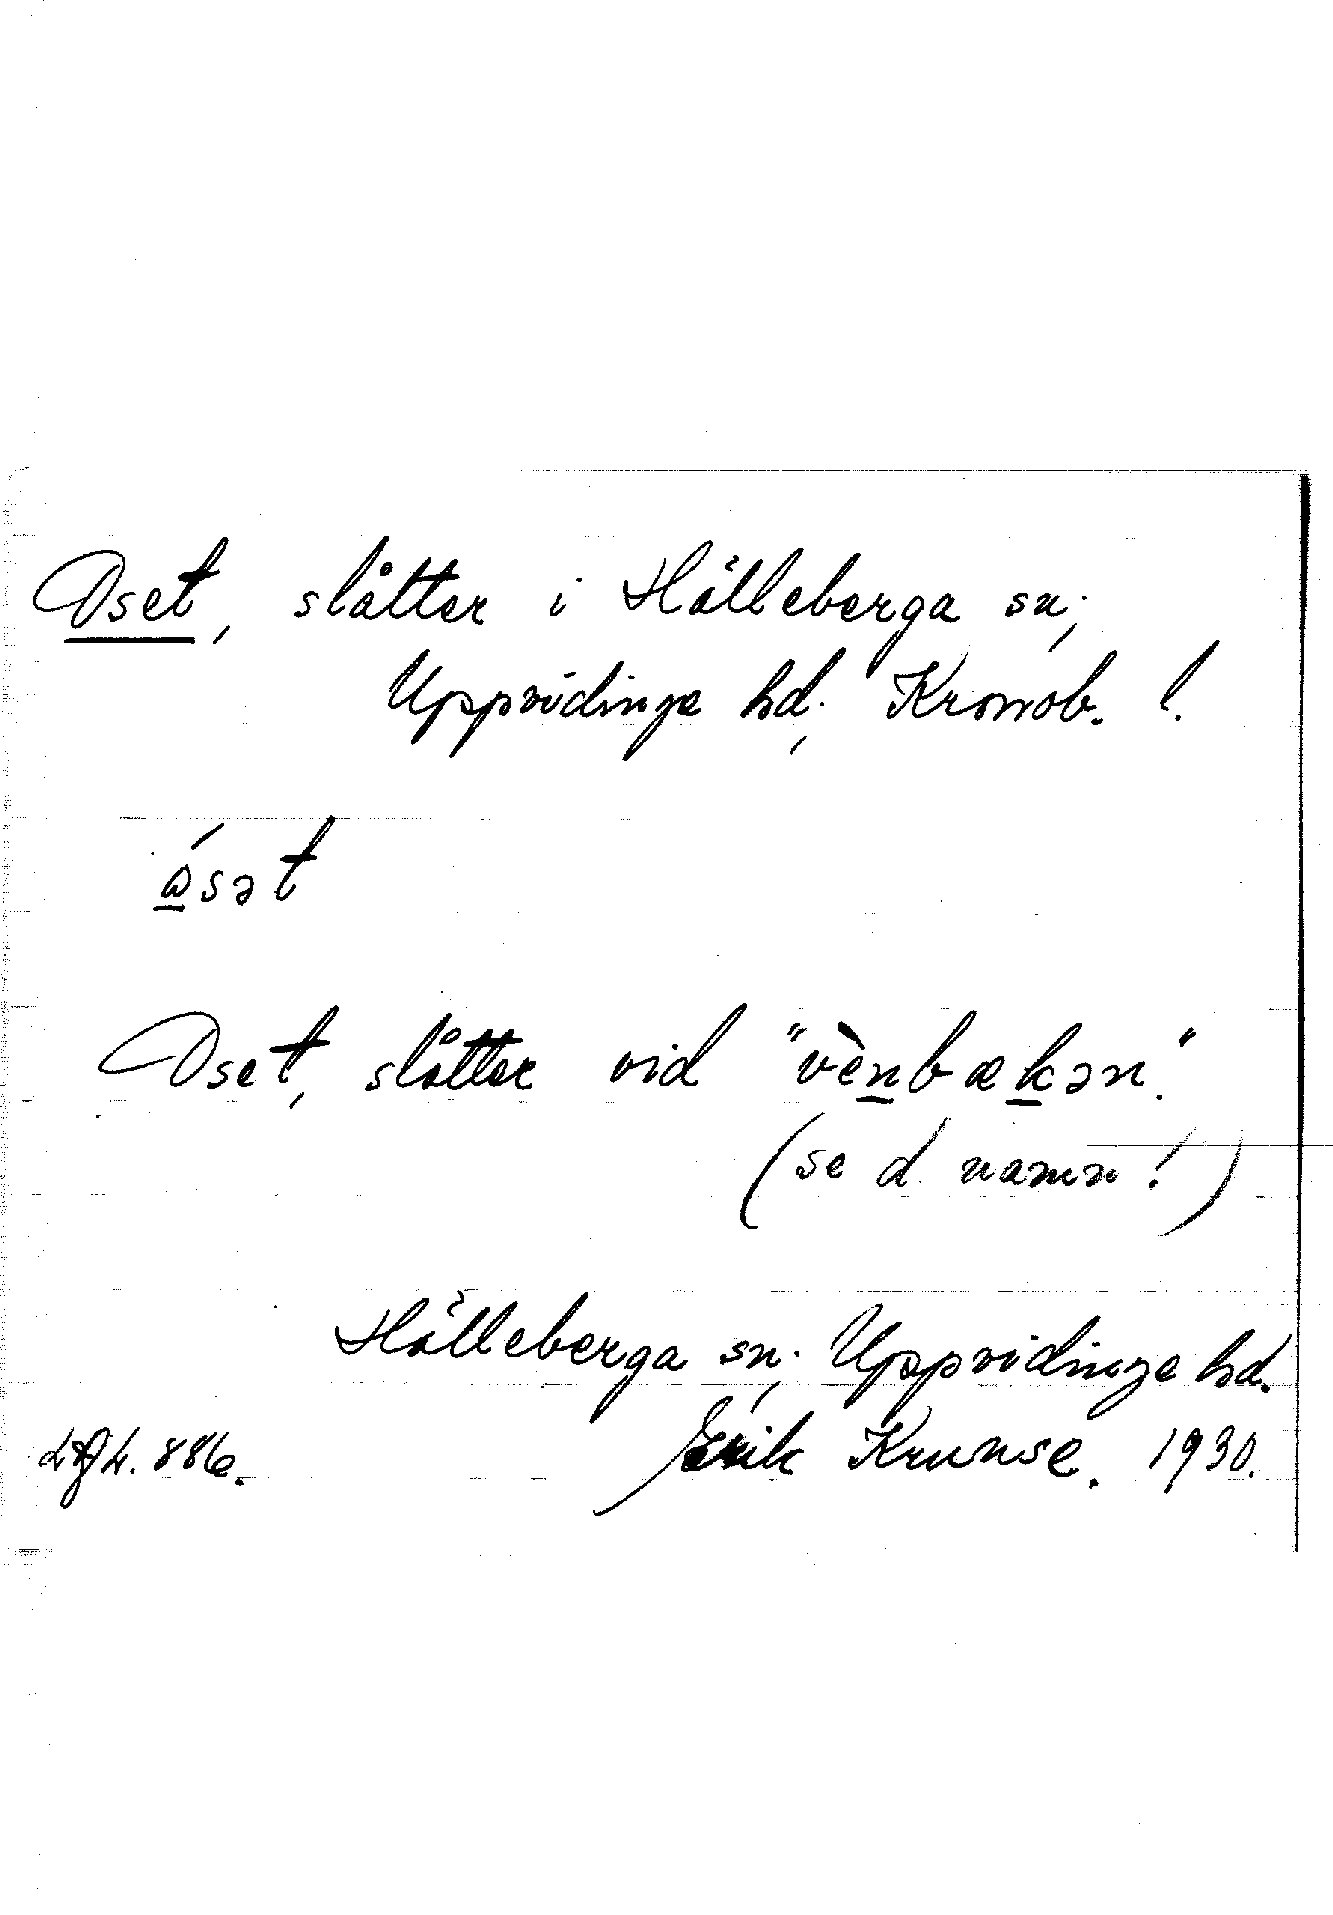 Oset, slåtter i Hälleberga sn;
Uppvidinge hd; Kronob. l.
ósət
Oset, slåtter vid "vènbækən".
(se d. namn!)
Hälleberga sn; Uppvidinge hd.
886. Erik Krunse. 1930.